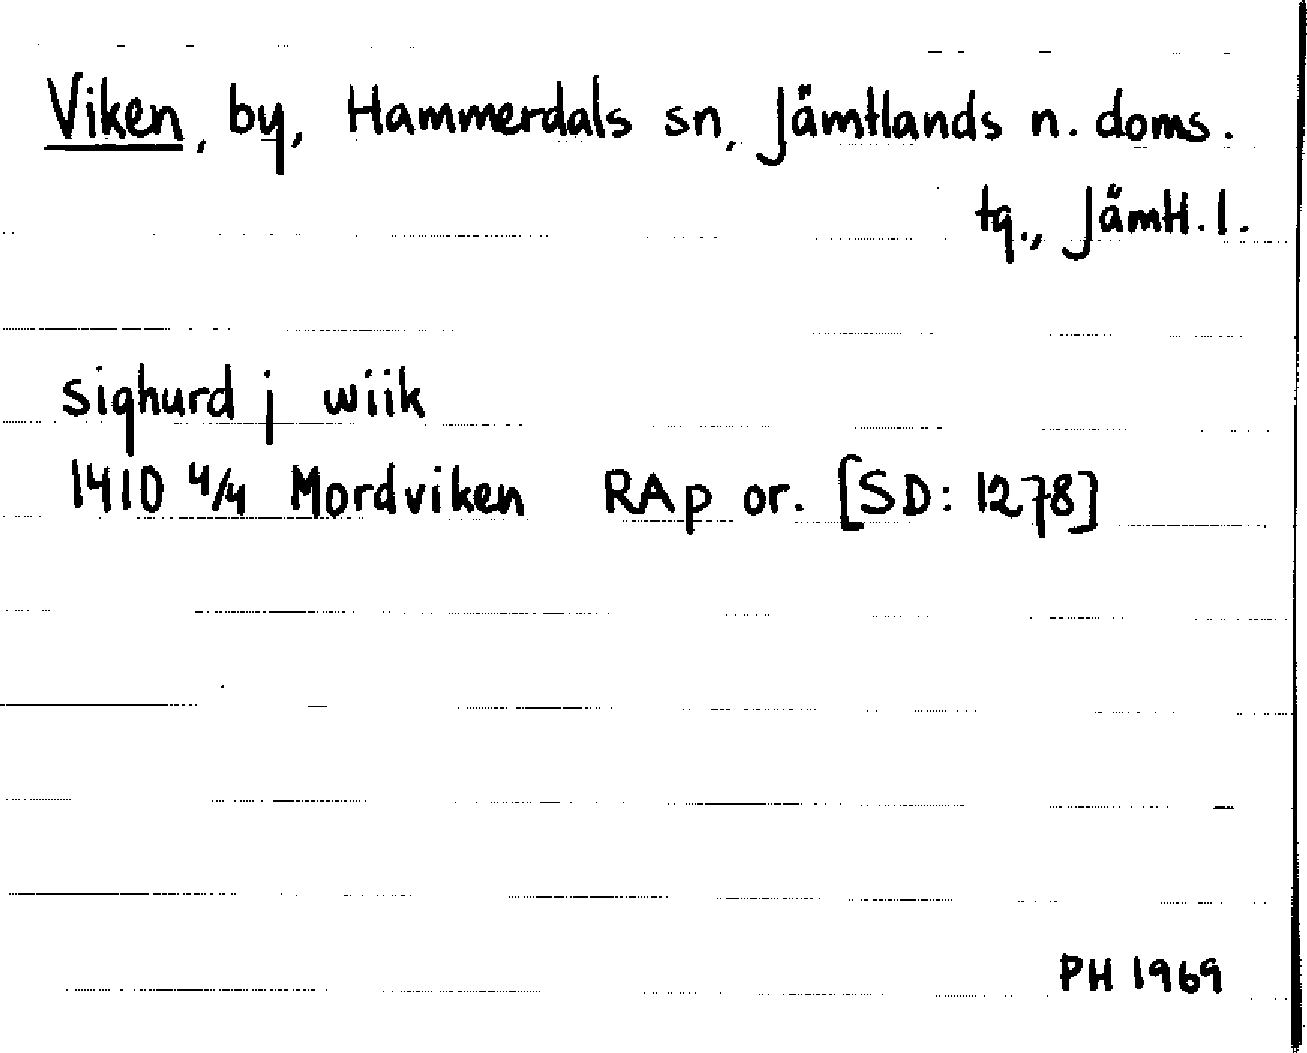 Viken, by, Hammerdals sn, Jämtlands n. doms.
tg., Jämtl. l.
sighurd j wiik
1410 4/4 Mordviken RAp or. [SD: 1278]
PH 1969